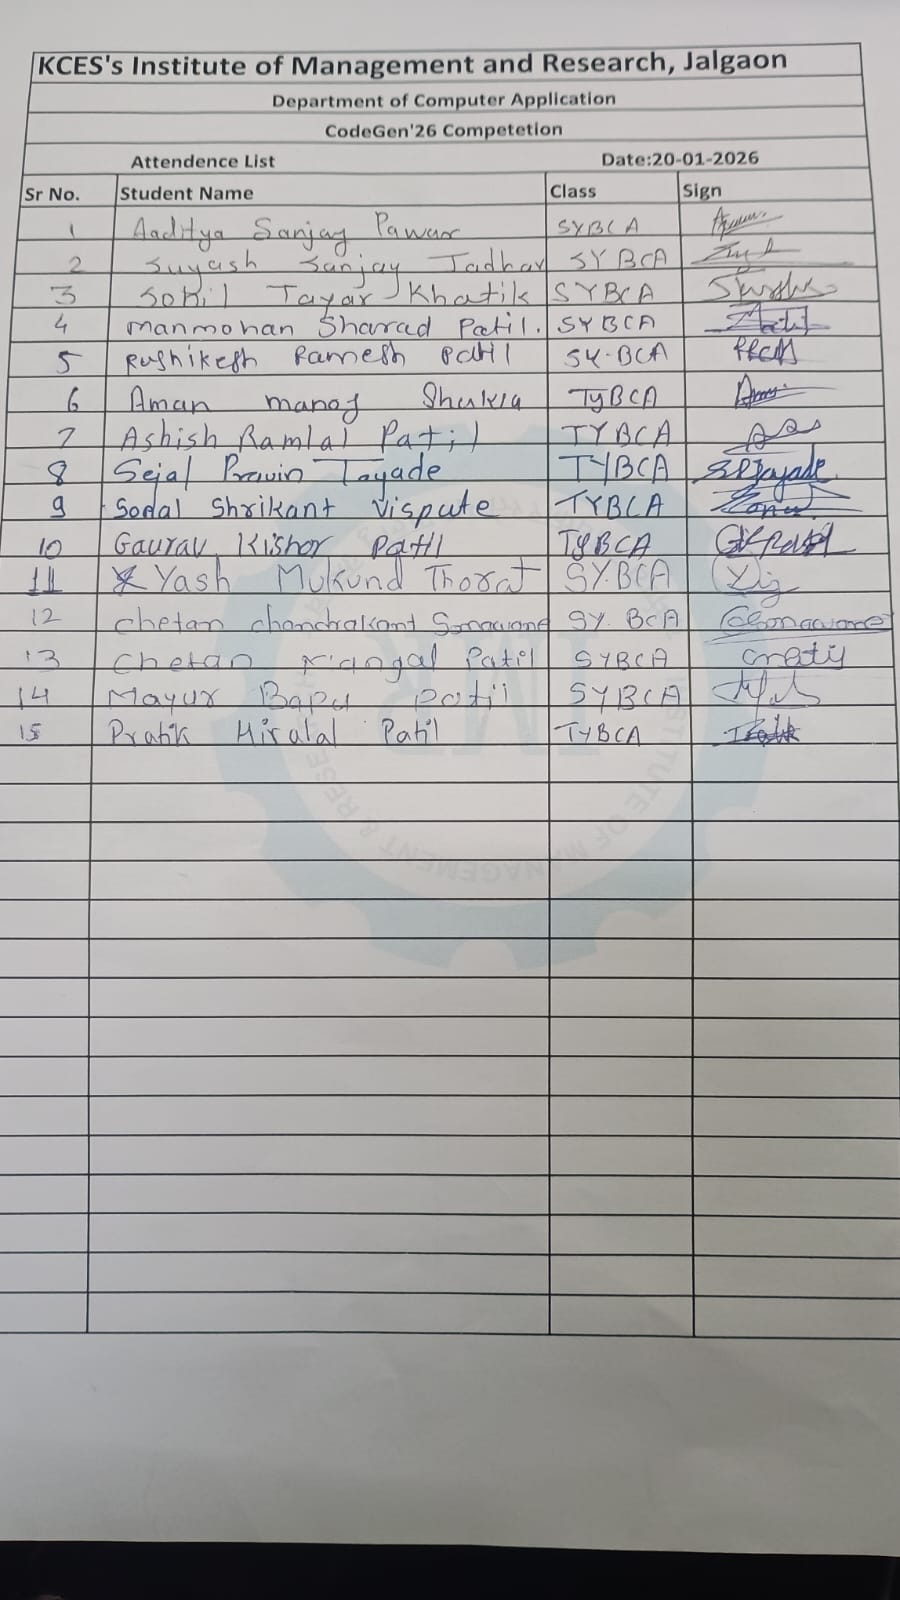 KCES's Institute of Management and Research, Jalgaon
Department of Computer Application
CodeGen'26 Competetion
Attendence List Date:20-01-2026
Sr No. Student Name Class Sign
1 Aaditya Sanjay Pawar SYBCA
2 Suyash Sanjay Jadhav SYBCA
3 Sohil Tayar Khatik SYBCA
4 Manmohan Sharad Patil. SYBCA
5 Rushikesh Ramesh Patil SY-BCA
6 Aman manoj Shukla TyBCA
7 Ashish Ramlal Patil TYBCA
8 Sejal Pravin Tayade TYBCA SPTayade
9 Sonal Shrikant Vispute TYBCA
10 Gaurav Kishor Patil TYBCA GKPatil
11 Yash Mukund Thorat SY.BCA
12 Chetan chandrakant Sonawane SY. BCA CSonawane
13 Chetan Patil SYBCA
14 Mayur Bapu Patil SYBCA
15 Pratik Hiralal Patil TYBCA
INSTITUTE OF MANAGEMENT & RESE
IMR